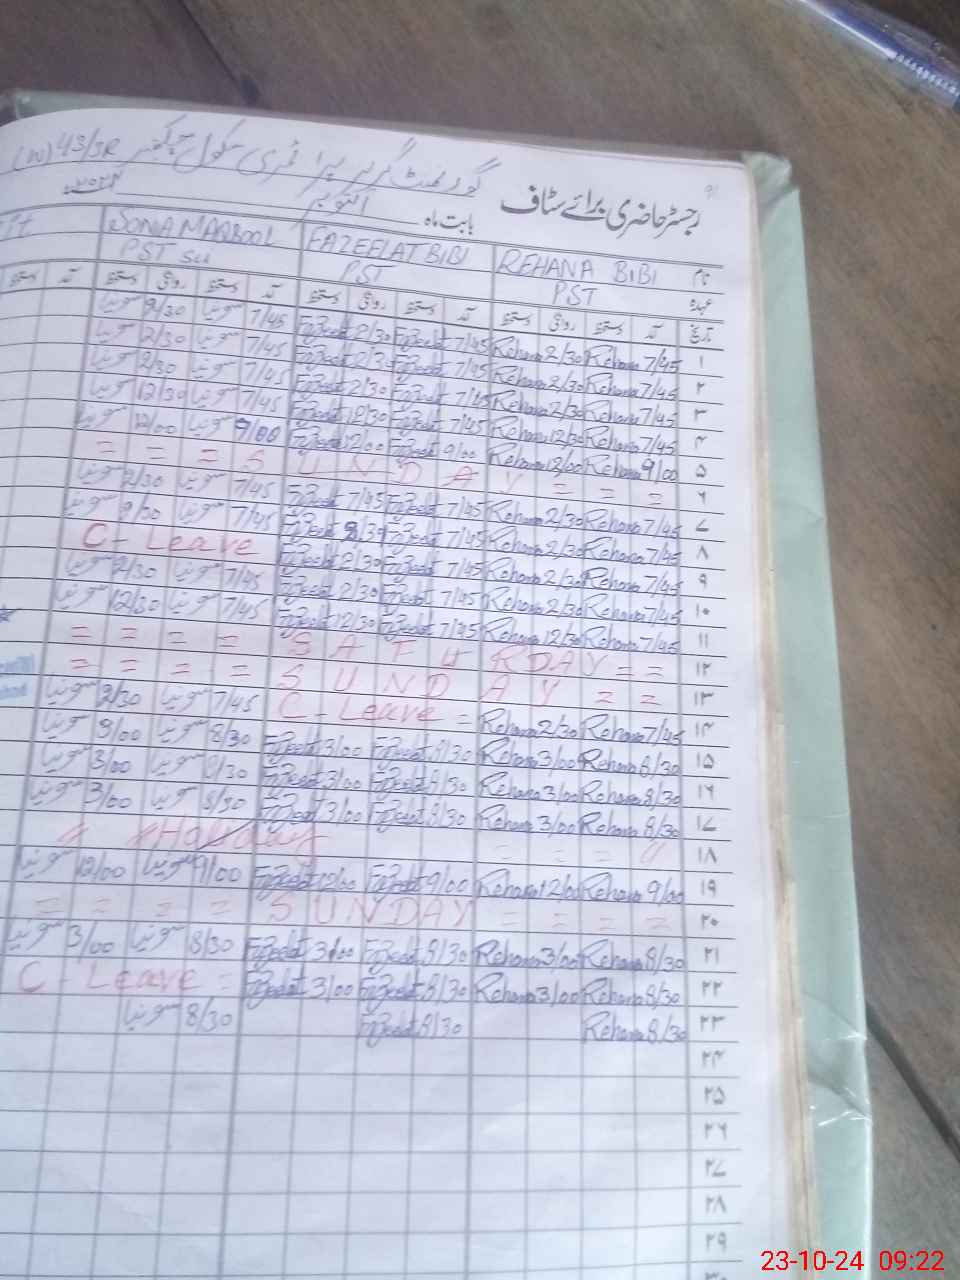 رجسٹر حاضری برائے سٹاف گورنمنٹ گرلز پرائمری سکول چک نمبر 43/3R (W)
بابت ماہ اکتوبر ۲۰۲۴ء
نام REHANA BIBI FAZEELAT BIBI SONIA MAQBOOL
عہدہ PST PST PST
تاریخ آمد دستخط روانگی دستخط آمد دستخط روانگی دستخط آمد دستخط روانگی دستخط آمد دستخط
۱ 7/45 Rehana 2/30 Rehana 7/45 Fazeelat 2/30 Fazeelat 7/45 سونیا 2/30 سونیا
۲ 7/45 Rehana 2/30 Rehana 7/45 Fazeelat 2/30 Fazeelat 7/45 سونیا 2/30 سونیا
۳ 7/45 Rehana 2/30 Rehana 7/45 Fazeelat 2/30 Fazeelat 7/45 سونیا 2/30 سونیا
۴ 7/45 Rehana 12/30 Rehana 7/45 Fazeelat 12/30 Fazeelat 7/45 سونیا 12/30 سونیا
۵ 9/00 Rehana 12/00 Rehana 9/00 Fazeelat 12/00 Fazeelat 9/00 سونیا 12/00 سونیا
۶ = = = SUNDAY = = =
۷ 7/45 Rehana 2/30 Rehana 7/45 Fazeelat 7/45 Fazeelat 7/45 سونیا 2/30 سونیا
۸ 7/45 Rehana 2/30 Rehana 7/45 Fazeelat 2/30 Fazeelat 7/45 سونیا 2/30 سونیا
۹ 7/45 Rehana 2/30 Rehana 7/45 Fazeelat 2/30 Fazeelat C-Leave
۱۰ 7/45 Rehana 2/30 Rehana 7/45 Fazeelat 2/30 Fazeelat 7/45 سونیا 2/30 سونیا
۱۱ 7/45 Rehana 12/30 Rehana 7/45 Fazeelat 12/30 Fazeelat 7/45 سونیا 12/30 سونیا
۱۲ = = = = SATURDAY = =
۱۳ = = = = SUNDAY = =
۱۴ 7/45 Rehana 2/30 Rehana C-Leave = 7/45 سونیا 2/30 سونیا
۱۵ 8/30 Rehana 3/00 Rehana 8/30 Fazeelat 3/00 Fazeelat 8/30 سونیا 3/00 سونیا
۱۶ 8/30 Rehana 3/00 Rehana 8/30 Fazeelat 3/00 Fazeelat 8/30 سونیا 3/00 سونیا
۱۷ 8/30 Rehana 3/00 Rehana 8/30 Fazeelat 3/00 Fazeelat 8/30 سونیا 3/00 سونیا
۱۸ Holiday = = =
۱۹ 9/00 Rehana 12/00 Rehana 9/00 Fazeelat 12/00 Fazeelat 9/00 سونیا 12/00 سونیا
۲۰ = = = = SUNDAY = = = =
۲۱ 8/30 Rehana 3/00 Rehana 8/30 Fazeelat 3/00 Fazeelat 8/30 سونیا 3/00 سونیا
۲۲ 8/30 Rehana 3/00 Rehana 8/30 Fazeelat 3/00 Fazeelat C-Leave =
۲۳ 8/30 Rehana 8/30 Fazeelat 8/30 سونیا
۲۴
۲۵
۲۶
۲۷
۲۸
۲۹
۳۰
23-10-24 09:22